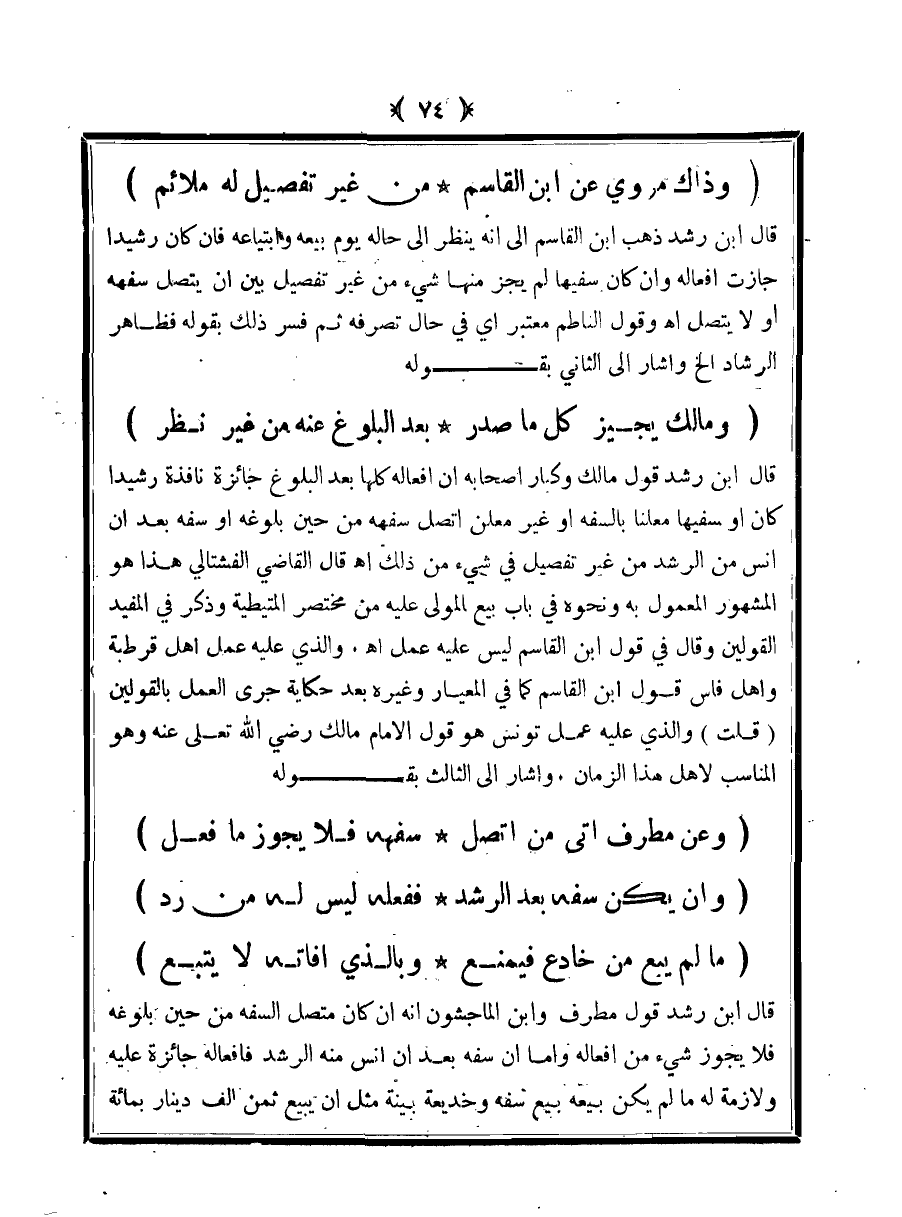 ﴿ ٧٤ ﴾
( وذاك مروي عن ابن القاسم * من غير تفصيل له ملائم )
قال ابن رشد ذهب ابن القاسم الى انه ينظر الى حاله يوم بيعه وابتياعه فان كان رشيدا
جازت افعاله وان كان سفيها لم يجز منها شيء من غير تفصيل بين ان يتصل سفهه
او لا يتصل اه وقول الناظم معتبر اي في حال تصرفه ثم فسر ذلك بقوله فظاهر
الرشاد الخ واشار الى الثاني بقوله
( ومالك يجيز كل ما صدر * بعد البلوغ عنه من غير نظر )
قال ابن رشد قول مالك وكبار اصحابه ان افعاله كلها بعد البلوغ جائزة نافذة رشيدا
كان او سفيها معلنا بالسفه او غير معلن اتصل سفهه من حين بلوغه او سفه بعد ان
انس من الرشد من غير تفصيل في شيء من ذلك اه قال القاضي الفشتالي هذا هو
المشهور المعمول به ونحوه في باب بيع المولى عليه من مختصر المتيطية وذكر في المفيد
القولين وقال في قول ابن القاسم ليس عليه عمل اه . والذي عليه عمل اهل قرطبة
واهل فاس قول ابن القاسم كما في المعيار وغيره بعد حكاية جرى العمل بالقولين
( قلت ) والذي عليه عمل تونس هو قول الامام مالك رضي الله تعلى عنه وهو
المناسب لاهل هذا الزمان . واشار الى الثالث بقوله
( وعن مطرف اتى من اتصل * سفهه فلا يجوز ما فعل )
( وان يكن سفه بعد الرشد * ففعله ليس له من رد )
( ما لم يبع من خادع فيمنع * وبالذي افاته لا يتبع )
قال ابن رشد قول مطرف وابن الماجشون انه ان كان متصل السفه من حين بلوغه
فلا يجوز شيء من افعاله واما ان سفه بعد ان انس منه الرشد فافعاله جائزة عليه
ولازمة له ما لم يكن بيعه بيع سفه وخديعة بينة مثل ان يبيع ثمن الف دينار بمائة